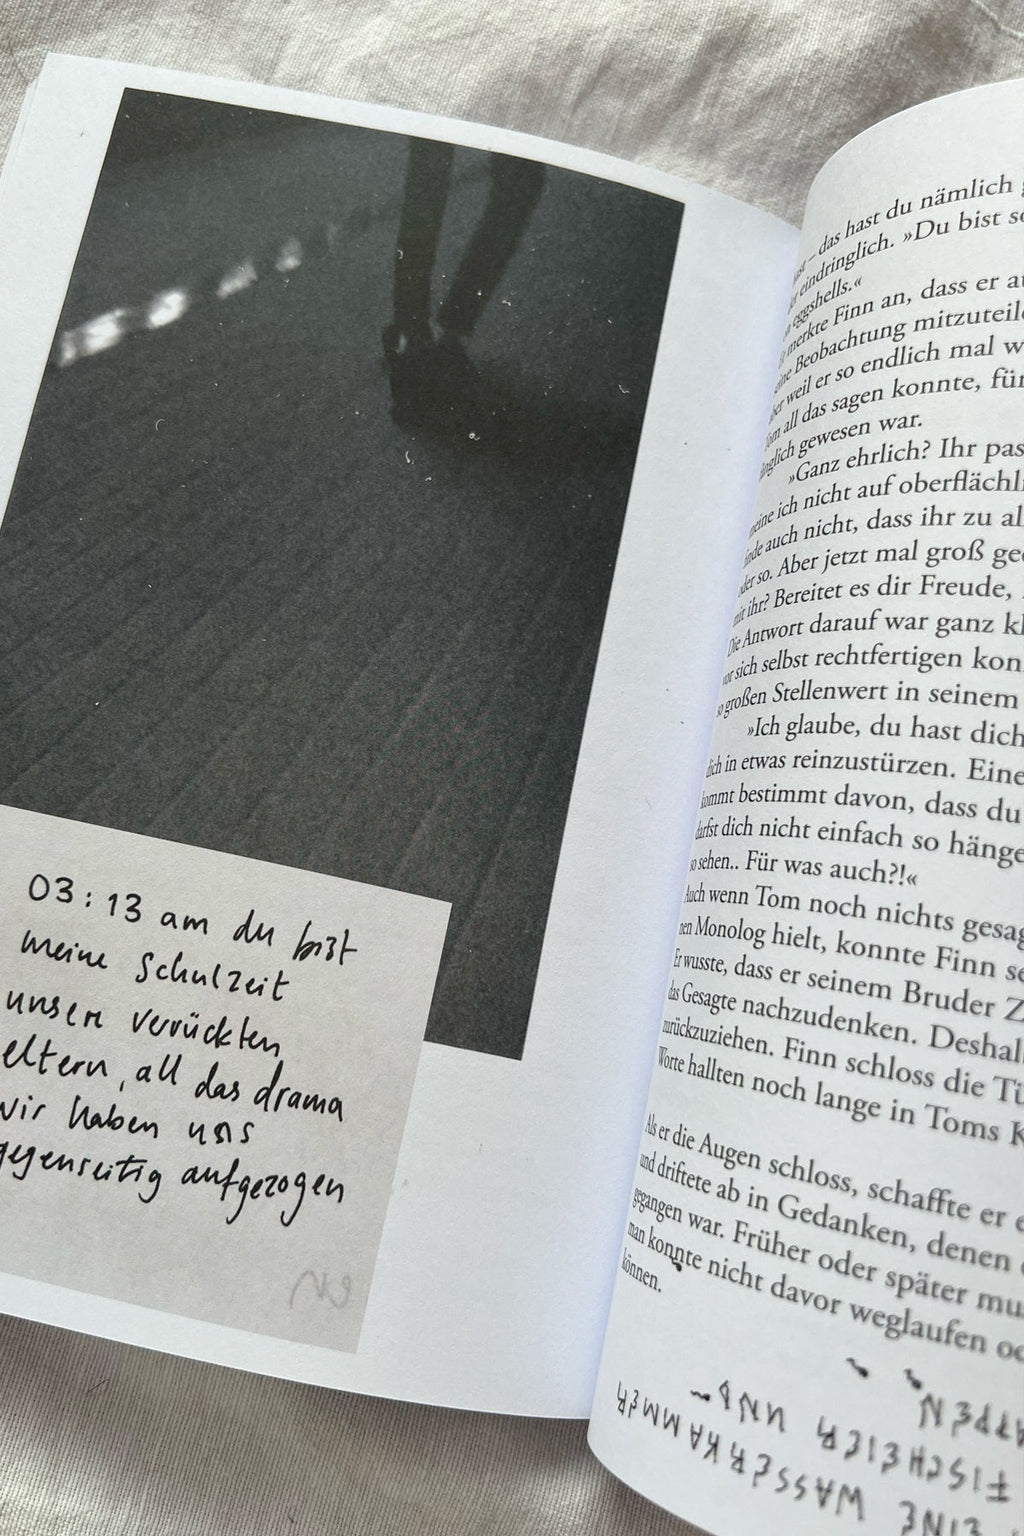 03:13 am du bist
meine Schulzeit
unsere verrückten
eltern, all das drama
wir haben uns
gegenseitig aufgezogen
– das hast du nämlich
eindringlich. »Du bist
eggshells.«
merkte Finn an, dass er
Beobachtung mitzuteilen
weil er so endlich mal
all das sagen konnte, für
gewesen war.
»Ganz ehrlich? Ihr
meine ich nicht auf
finde auch nicht, dass ihr zu
oder so. Aber jetzt mal groß
mit ihr? Bereitet es dir Freude,
Die Antwort darauf war ganz
vor sich selbst rechtfertigen
so großen Stellenwert in seinem
»Ich glaube, du hast dich
dich in etwas reinzustürzen. Eine
kommt bestimmt davon, dass du
darfst dich nicht einfach so
so sehen.. Für was auch?!«
Auch wenn Tom noch nichts
nen Monolog hielt, konnte Finn
Er wusste, dass er seinem Bruder
das Gesagte nachzudenken.
zurückzuziehen. Finn schloss die
Worte hallten noch lange in Toms
Als er die Augen schloss, schaffte er
und driftete ab in Gedanken, denen
gegangen war. Früher oder später
man konnte nicht davor weglaufen
können.
EINE WASSERKAMMER
FISCHEIER UND